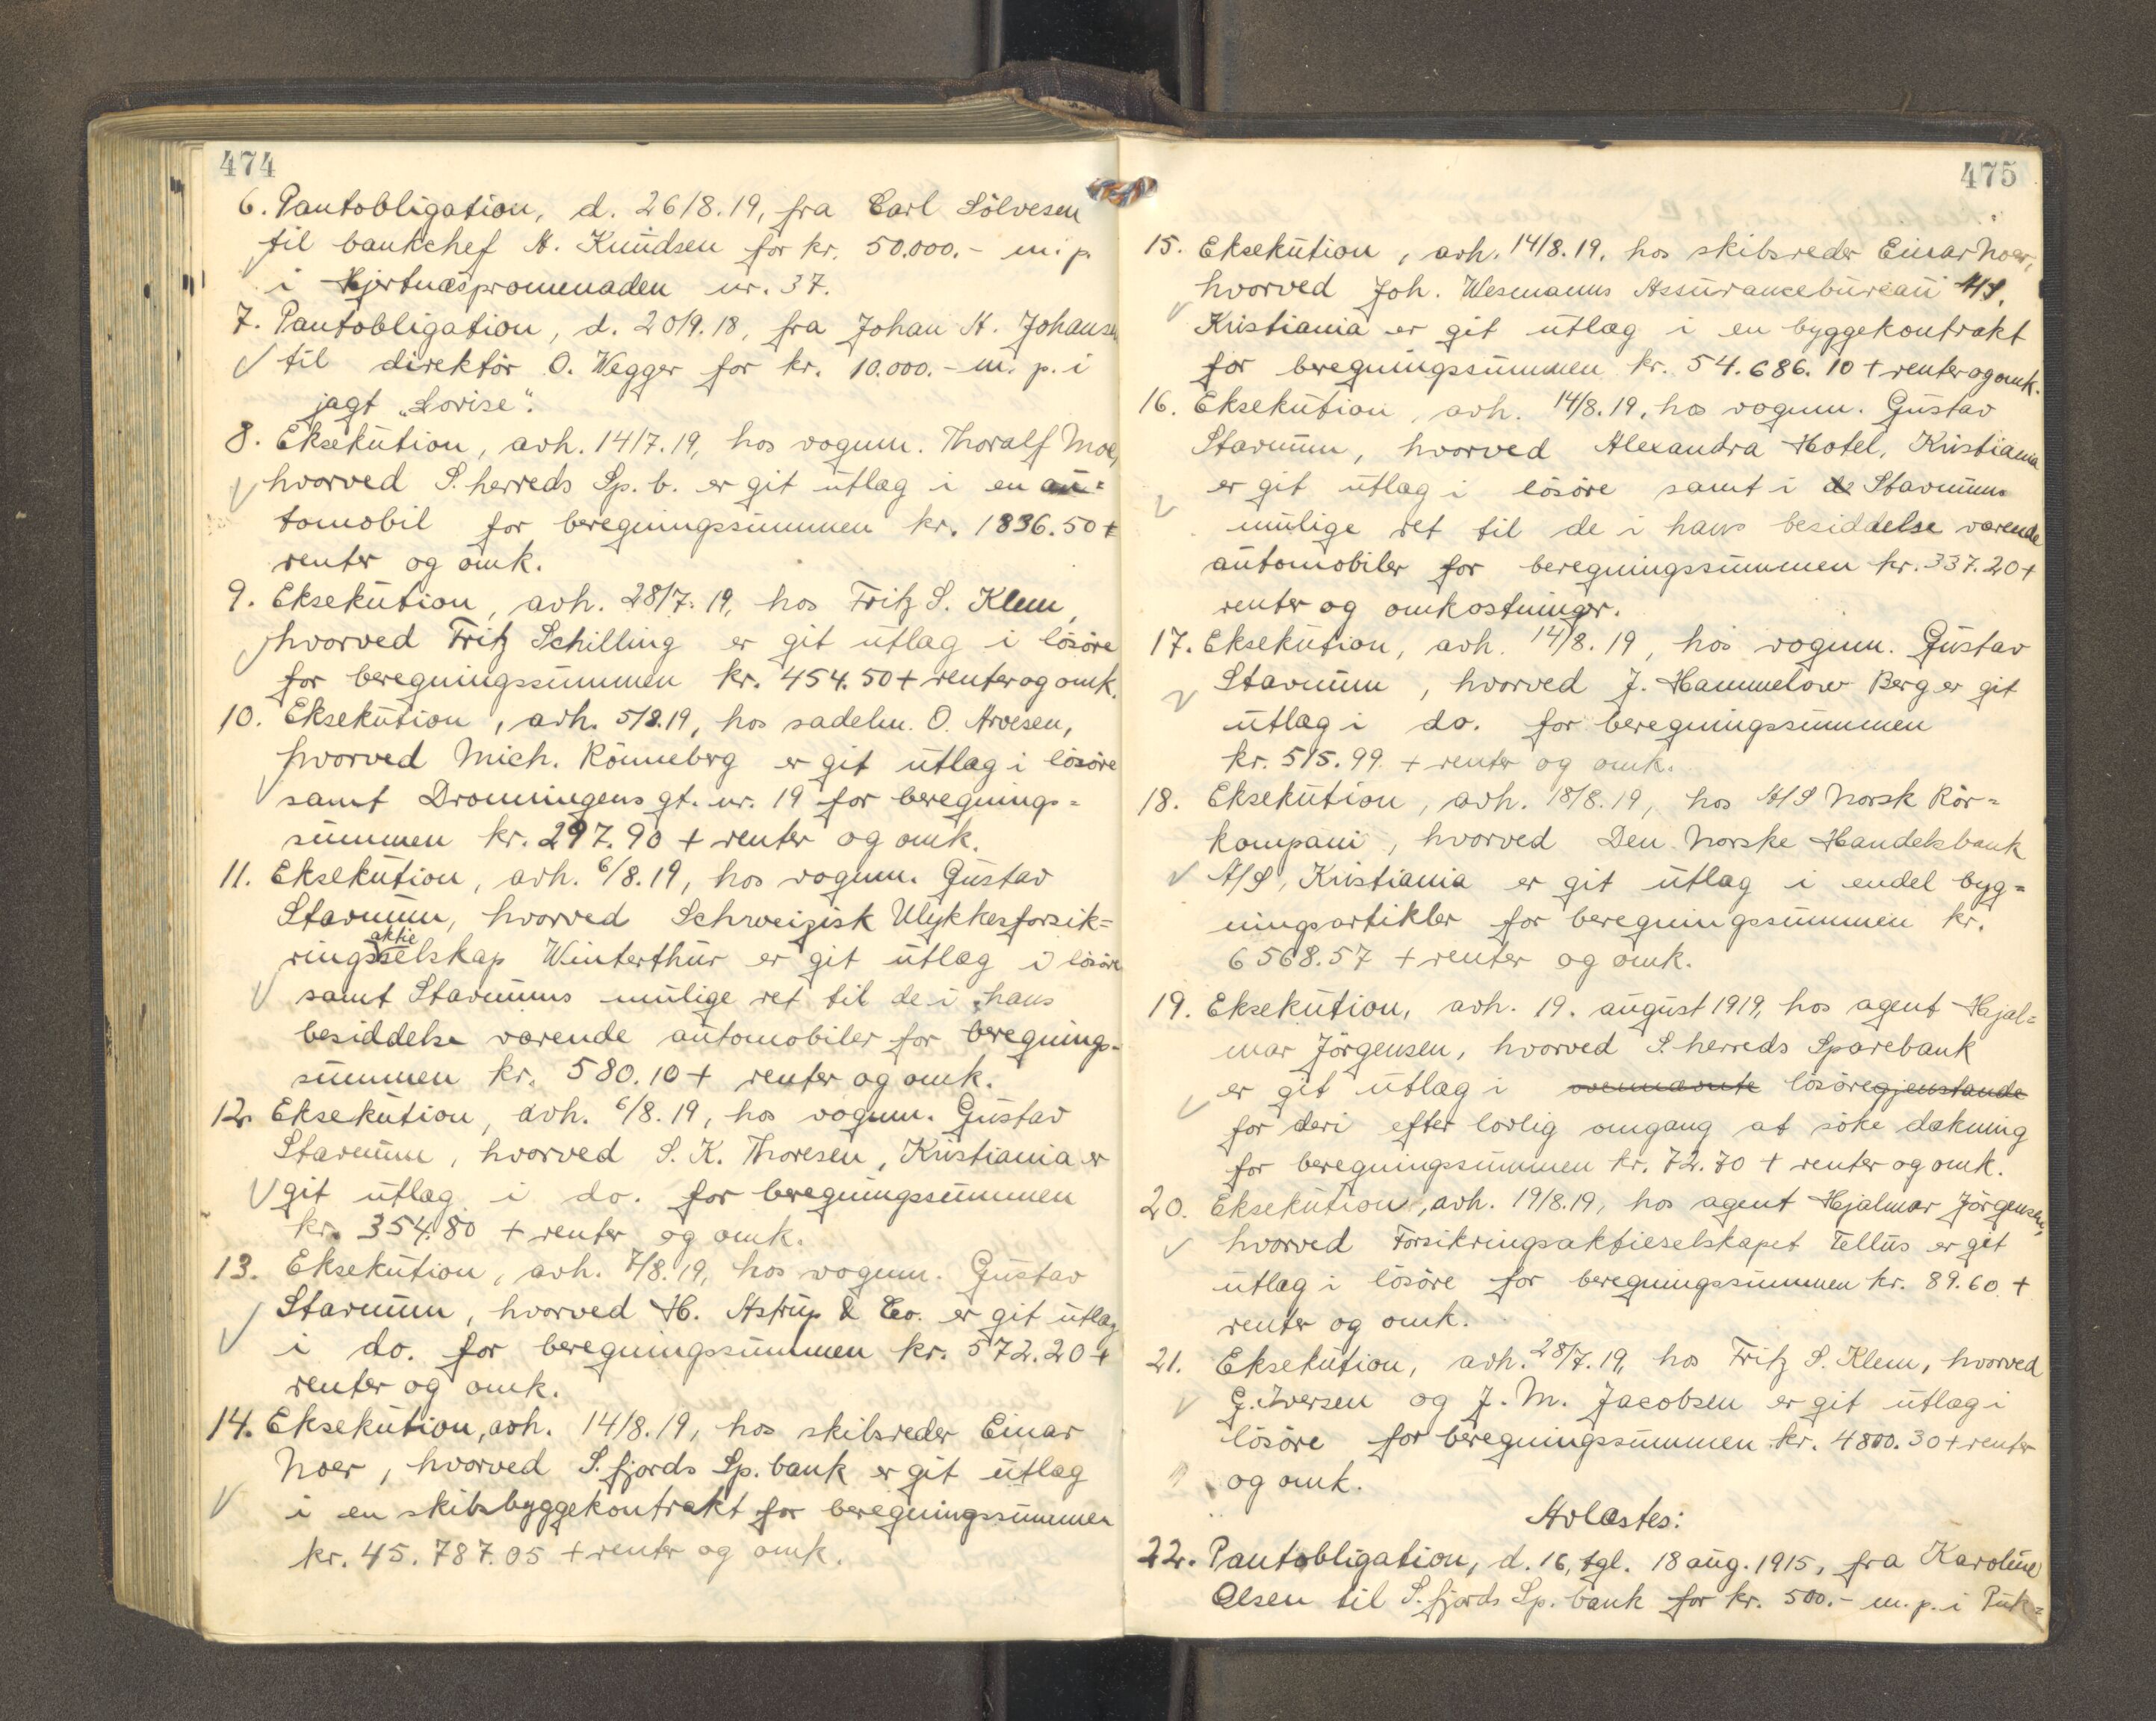 474
6. Pantobligation, d. 26/8.19, fra Carl Sölvesen
til bankchef A. Knudsen for kr. 50.000.- m. p.
i Hjertnæspromenaden nr. 37.
7. Pantobligation, d. 20/9.18, fra Johan A. Johansen
til direktör O. Wegger for kr. 10.000.- m. p. i
jagt „Lovise".
8. Eksekution, avh. 14/7.19, hos vognm. Thoralf Moe,
hvorved S. herreds Sp. b. er git utlæg i en au=
tomobil for beregningssummen kr. 1836.50 +
renter og omk.
9. Eksekution, avh. 28/7.19, hos Fritz S. Klem,
hvorved Fritz Schilling er git utlæg i lösöre
for beregningssummen kr. 454.50 + renter og omk.
10. Eksekution, avh. 5/8.19, hos sadelm. O. Arvesen,
hvorved Mich. Rönneberg er git utlæg i lösöre
samt Dronningens gt. nr. 19 for beregnings=
summen kr. 297.90 + renter og omk.
11. Eksekution, avh. 6/8.19, hos vognm. Gustav
Stavnum, hvorved Schweizisk Ulykkesforsik=
ringsaktieselskap Winterthur er git utlæg i lösöre
samt Stavnums mulige ret til de i hans
besiddelse værende automobiler for beregnings-
summen kr. 580.10 + renter og omk.
12. Eksekution, avh. 6/8.19, hos vognm. Gustav
Stavnum, hvorved S. K. Thoresen, Kristiania er
git utlæg i do. for beregningssummen
kr. 354.80 + renter og omk.
13. Eksekution, avh. 7/8.19, hos vognm. Gustav
Stavnum, hvorved H. Astrup & Co. er git utlæg
i do. for beregningssummen kr. 572.20 +
renter og omk.
14. Eksekution, avh. 14/8.19, hos skibsreder Einar
Noer, hvorved S. fjords Sp. bank er git utlæg
i en skibsbyggekontrakt for beregningssummen
kr. 45.787.05 + renter og omk.
475
15. Eksekution, avh. 14/8.19, hos skibsreder Einar Noer,
hvorved Joh. Wesmanns Assurancebureau A/S,
Kristiania er git utlæg i en byggekontrakt
for beregningssummen kr. 54.686.10 + renter og omk.
16. Eksekution, avh. 14/8.19, hos vognm. Gustav
Stavnum, hvorved Alexandra Hotel, Kristiania
er git utlæg i lösöre samt i de Stavnums
mulige ret til de i hans besiddelse værende
automobiler for beregningssummen kr. 337.20 +
renter og omkostninger.
17. Eksekution, avh. 14/8.19, hos vognm. Gustav
Stavnum, hvorved J. Hammelow Berg er git
utlæg i do. for beregningssummen
kr. 515.99 + renter og omk.
18. Eksekution, avh. 18/8.19, hos A/S Norsk Rör=
kompani, hvorved Den Norske Handelsbank
A/S, Kristiania er git utlæg i endel byg=
ningsartikler for beregningssummen kr.
6568.57 + renter og omk.
19. Eksekution, avh. 19. august 1919, hos agent Hjal=
mar Jörgensen, hvorved S. herreds Sparebank
er git utlæg i ovennævnte lösöregjenstande
for deri efter lovlig omgang at söke dækning
for beregningssummen kr. 72.70 + renter og omk.
20. Eksekution, avh. 19/8.19, hos agent Hjalmar Jörgensen,
hvorved Forsikringsaktieselskapet Tellus er git
utlæg i lösöre for beregningssummen kr. 89.60 +
renter og omk.
21. Eksekution, avh. 28/7.19, hos Fritz S. Klem, hvorved
G. Iversen og J. M. Jacobsen er git utlæg i
lösöre for beregningssummen kr. 4800.30 + renter
og omk.
Avlæstes:
22. Pantobligation, d. 16, tgl. 18 aug. 1915, fra Karoline
Olsen til S. fjords Sp. bank for kr. 500.- m. p. i Puk=